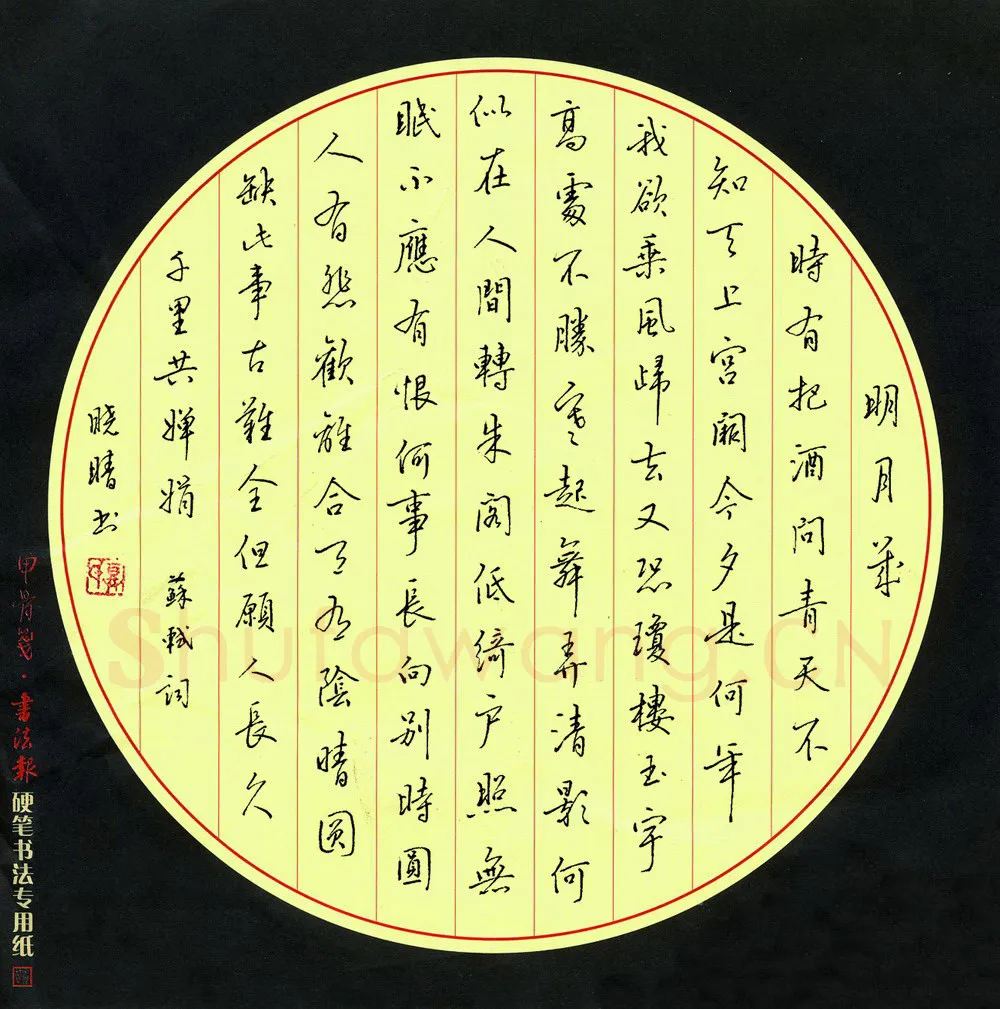 明月幾
時有把酒問青天不
知天上宮闕今夕是何年
我欲乘風歸去又恐瓊樓玉宇
高處不勝寒起舞弄清影何
似在人間轉朱閣低綺户照無
眠不應有恨何事長向别時圓
人有悲歡離合月有陰晴圆
缺此事古難全但願人長久
千里共嬋娟 蘇軾詞
晓晴书
甲骨笺·書法報硬笔书法专用纸
Shufawang.CN